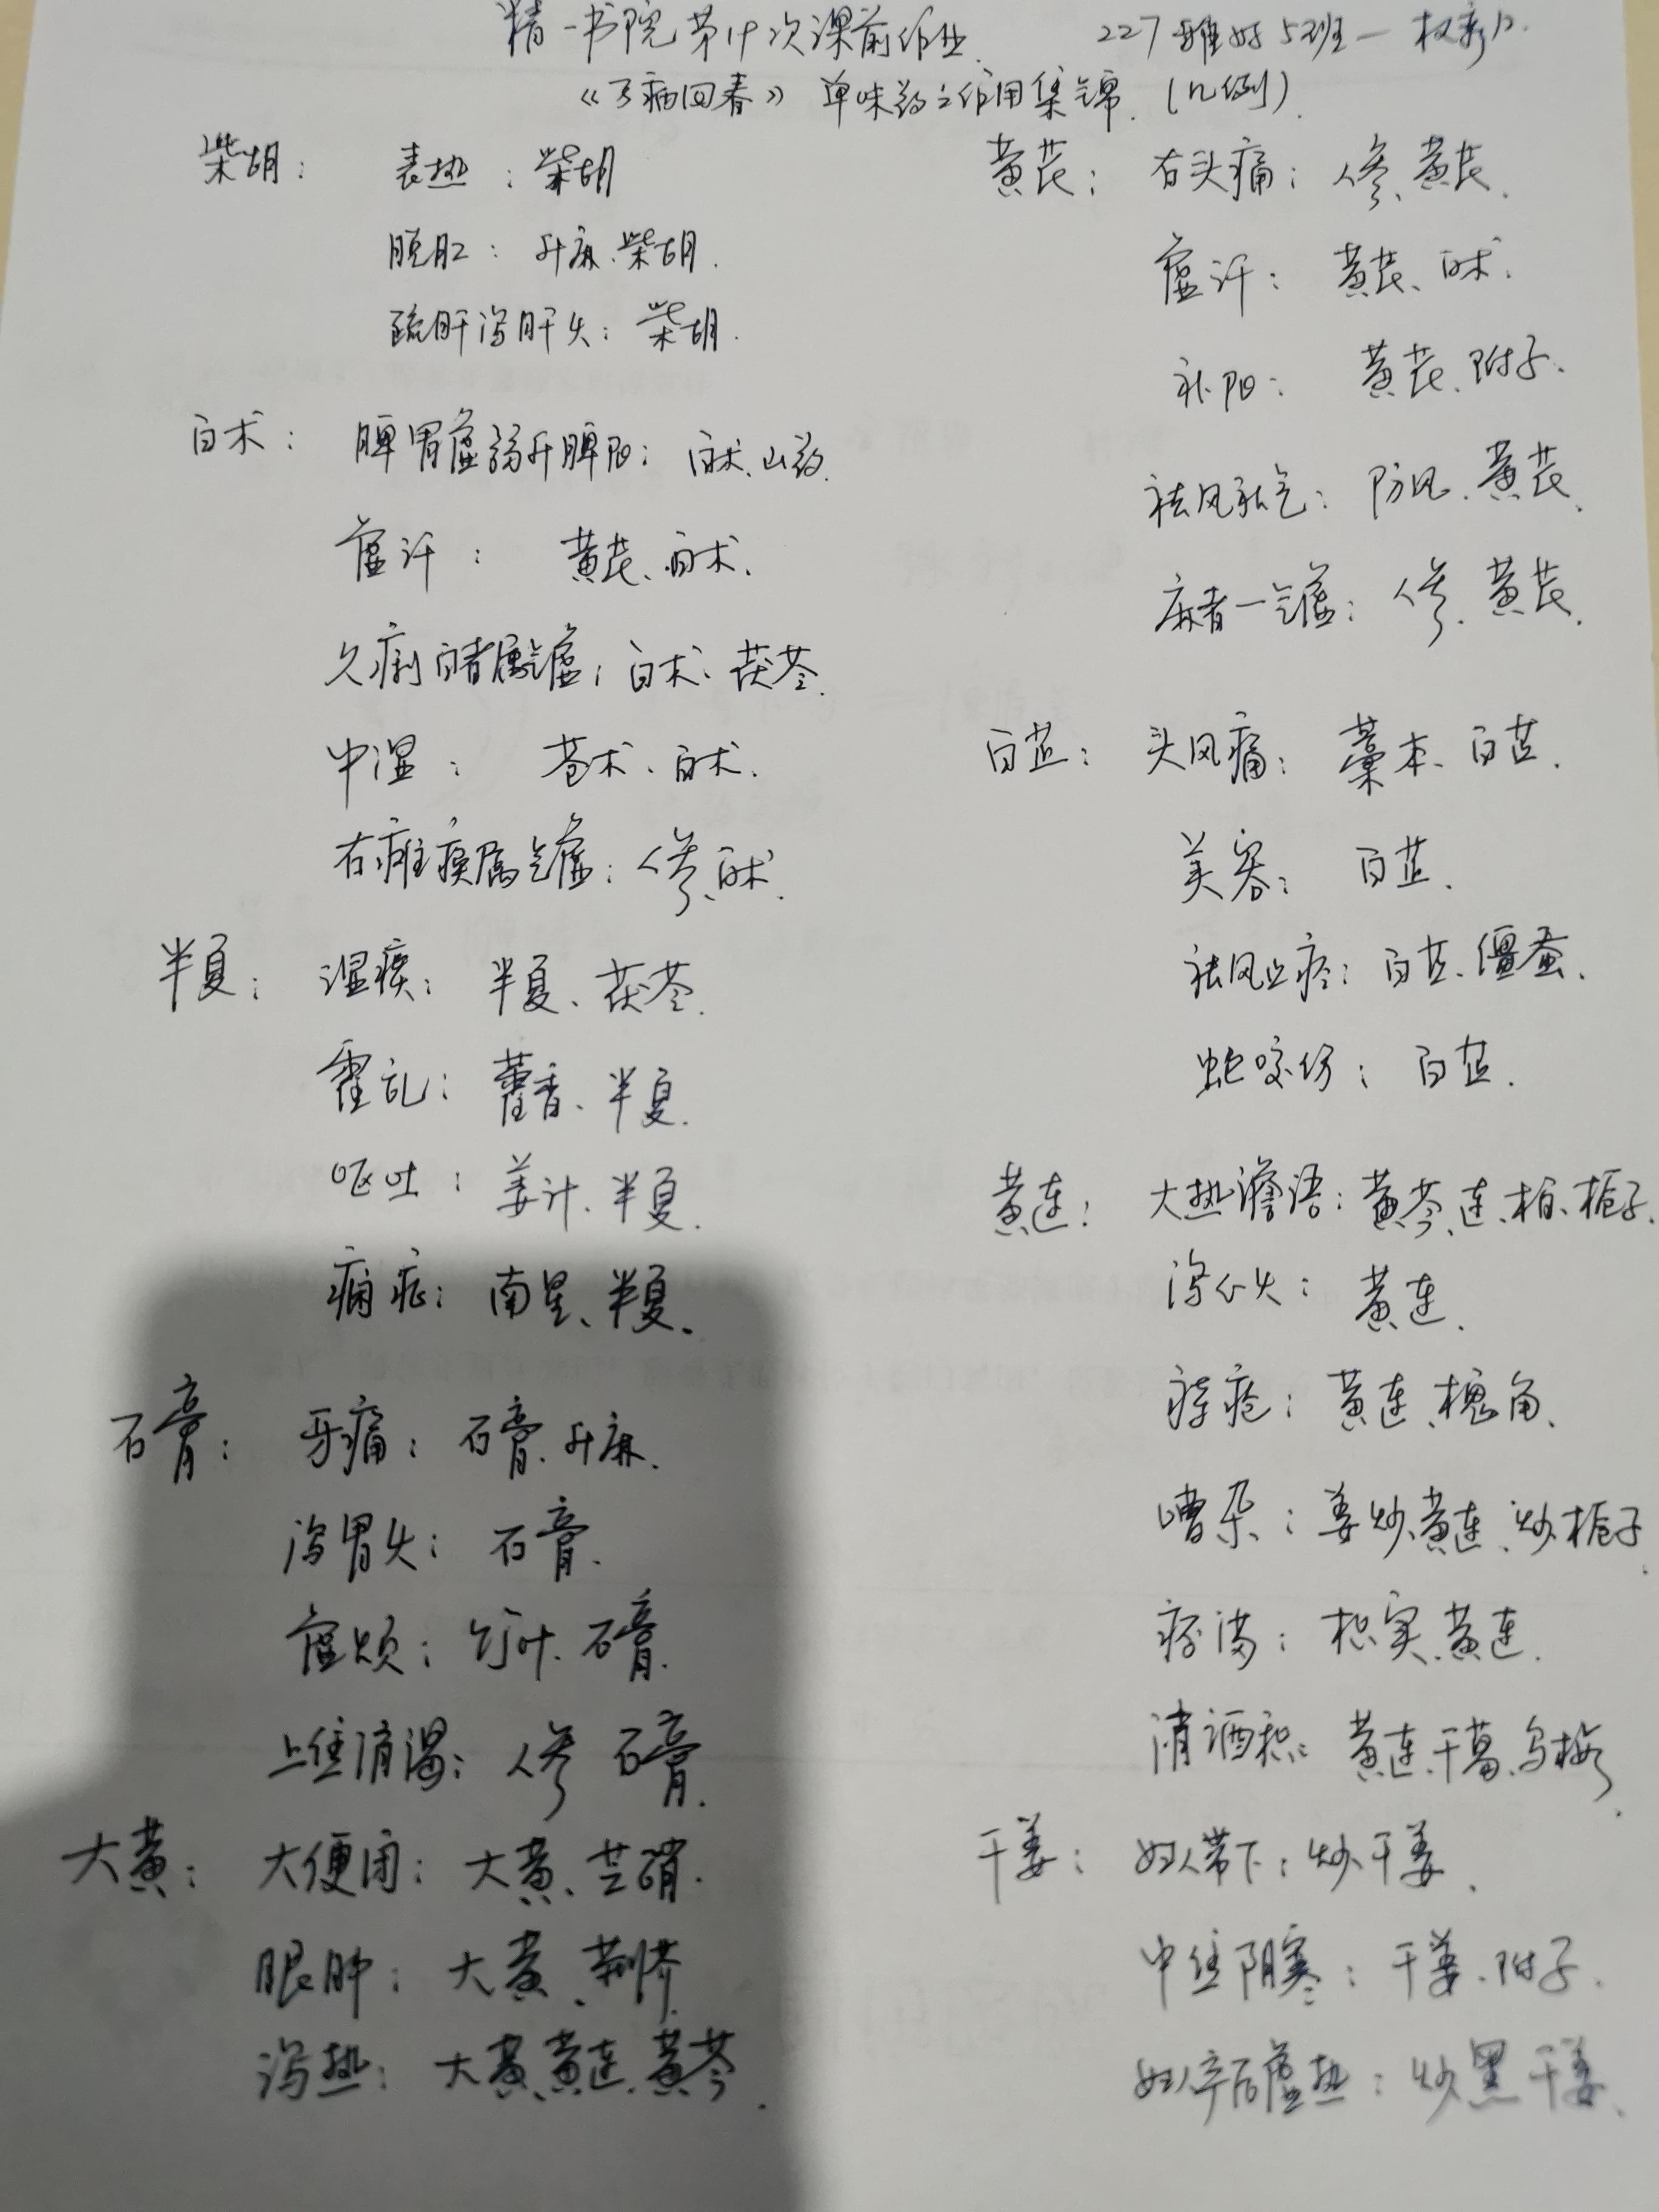 精一书院第十次课前作业 227 雅好5班一
《万病回春》单味药之作用集锦.(几例).
柴胡: 表热:柴胡
脱肛:升麻、柴胡.
疏肝泻肝火:柴胡.
白术: 脾胃虚弱升脾阳:白术、山药.
虚汗: 黄芪、白术.
久痢白者属气虚:白术、茯苓.
中湿: 苍术、白术.
右瘫痪属气虚:人参、白术.
半夏: 湿痰:半夏、茯苓.
霍乱:藿香、半夏.
呕吐:姜汁、半夏.
痫症:南星、半夏.
石膏: 牙痛:石膏、升麻.
泻胃火:石膏.
虚烦:竹叶、石膏.
上焦消渴:人参 石膏.
大黄: 大便闭:大黄、芒硝.
眼肿:大黄、荆芥.
泻热:大黄、黄连、黄芩.
黄芪: 右头痛:人参、黄芪.
虚汗:黄芪、白术.
补阳: 黄芪、附子.
祛风私气:防风、黄芪.
麻者一气虚:人参、黄芪.
白芷: 头风痛:藁本、白芷.
美容: 白芷.
祛风止疼:白芷、僵蚕.
蛇咬伤:白芷.
黄连: 大热谵语:黄芩、连、柏、栀子.
泻心火:黄连.
痔疮:黄连、槐角.
嘈杂:姜炒黄连、炒栀子.
痞满:枳实、黄连.
消酒积:黄连、干葛、乌梅.
干姜: 妇人带下:炒干姜.
中焦阴寒:干姜、附子.
妇人产后虚热:炒黑干姜.